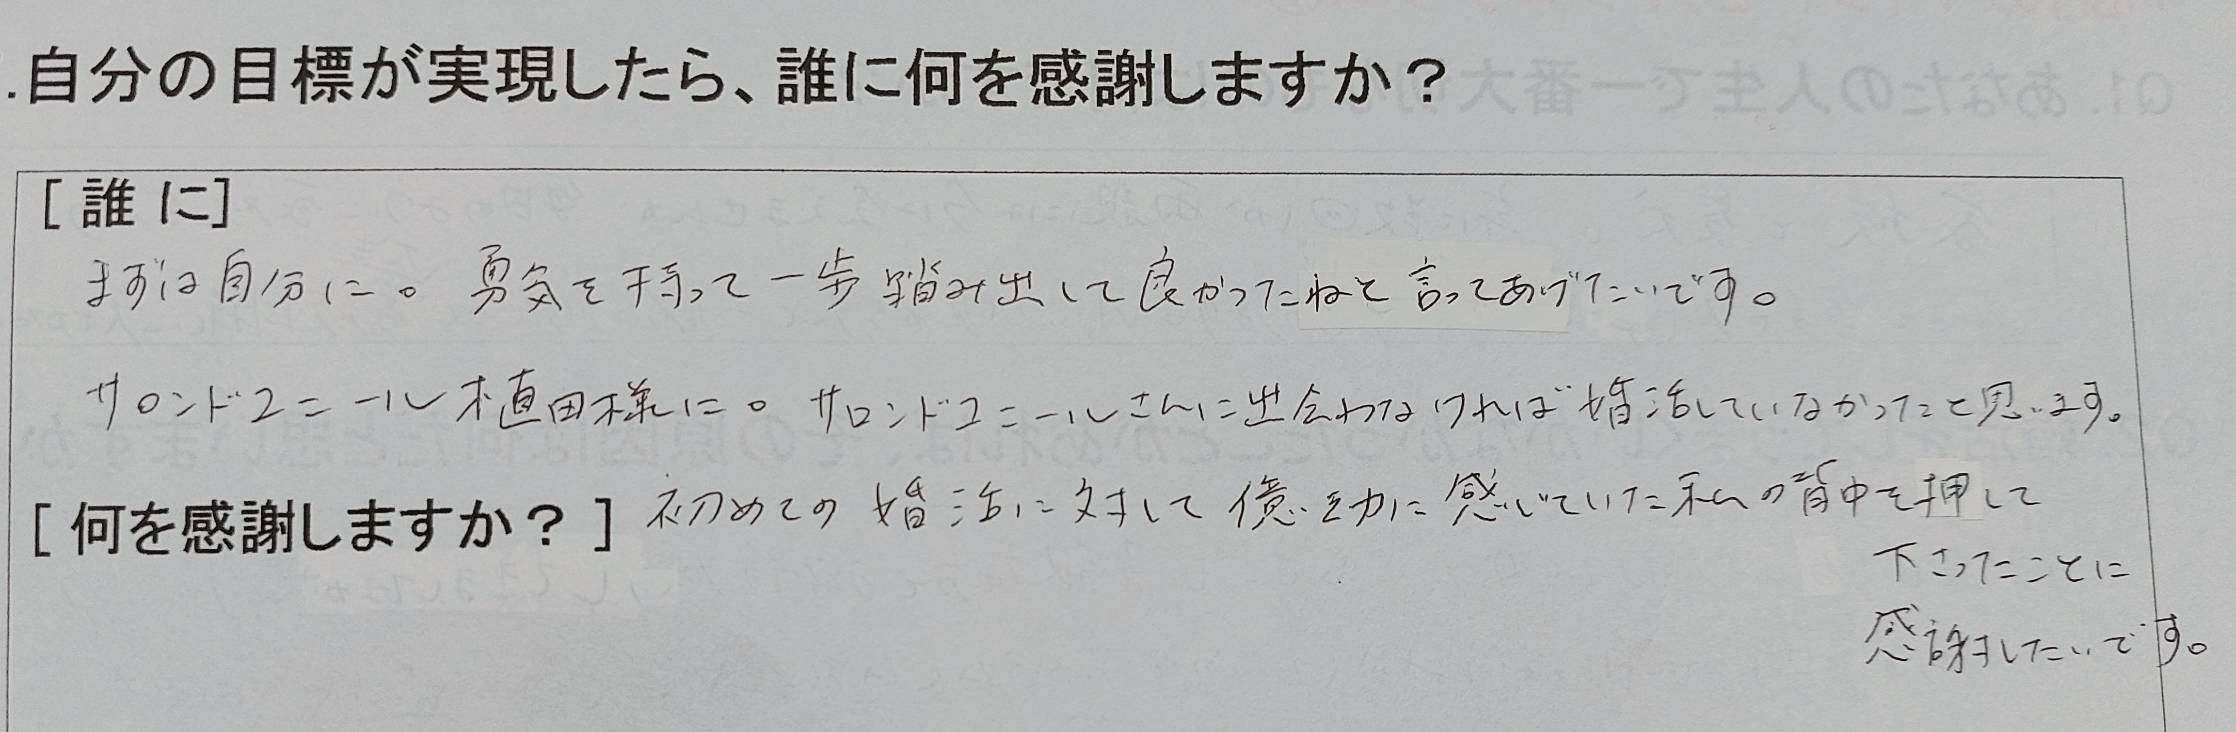 .自分の目標が実現したら、誰に何を感謝しますか？
[ 誰 に]
まずは自分に。勇気を持って一歩踏み出して良かったねと言ってあげたいです。
サロンドユニール植田様に。サロンドユニールさんに出会わなければ婚活していなかったと思います。
[ 何を感謝しますか？ ] 初めての婚活に対して億劫に感じていた私の背中を押して
下さったことに
感謝したいです。